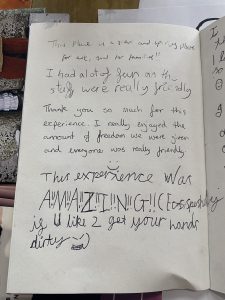 This place is a and place
for and for families!!
I had a lot of fun as the
stuff were really friendly
Thank you so much for this
experience. I really engaged the
amount of freedom we were given
and everyone was really friendly.
This experience was
A!M!A!Z!I!N!G!! (Especially
if U like 2 get your hands
dirty
I